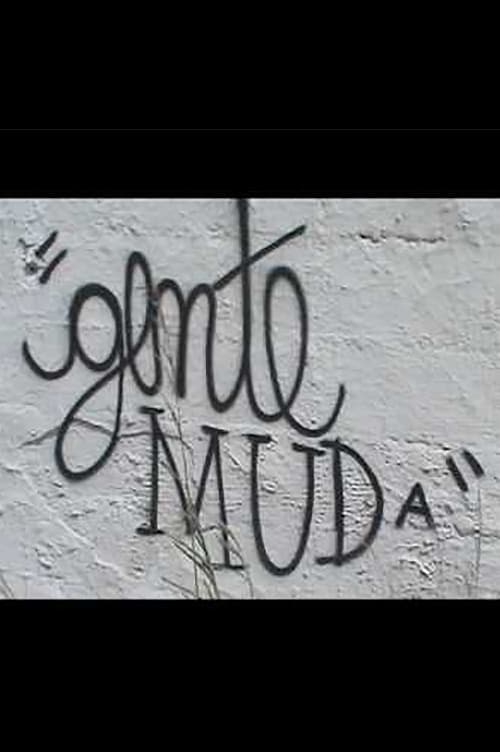 "gente
MUDA"